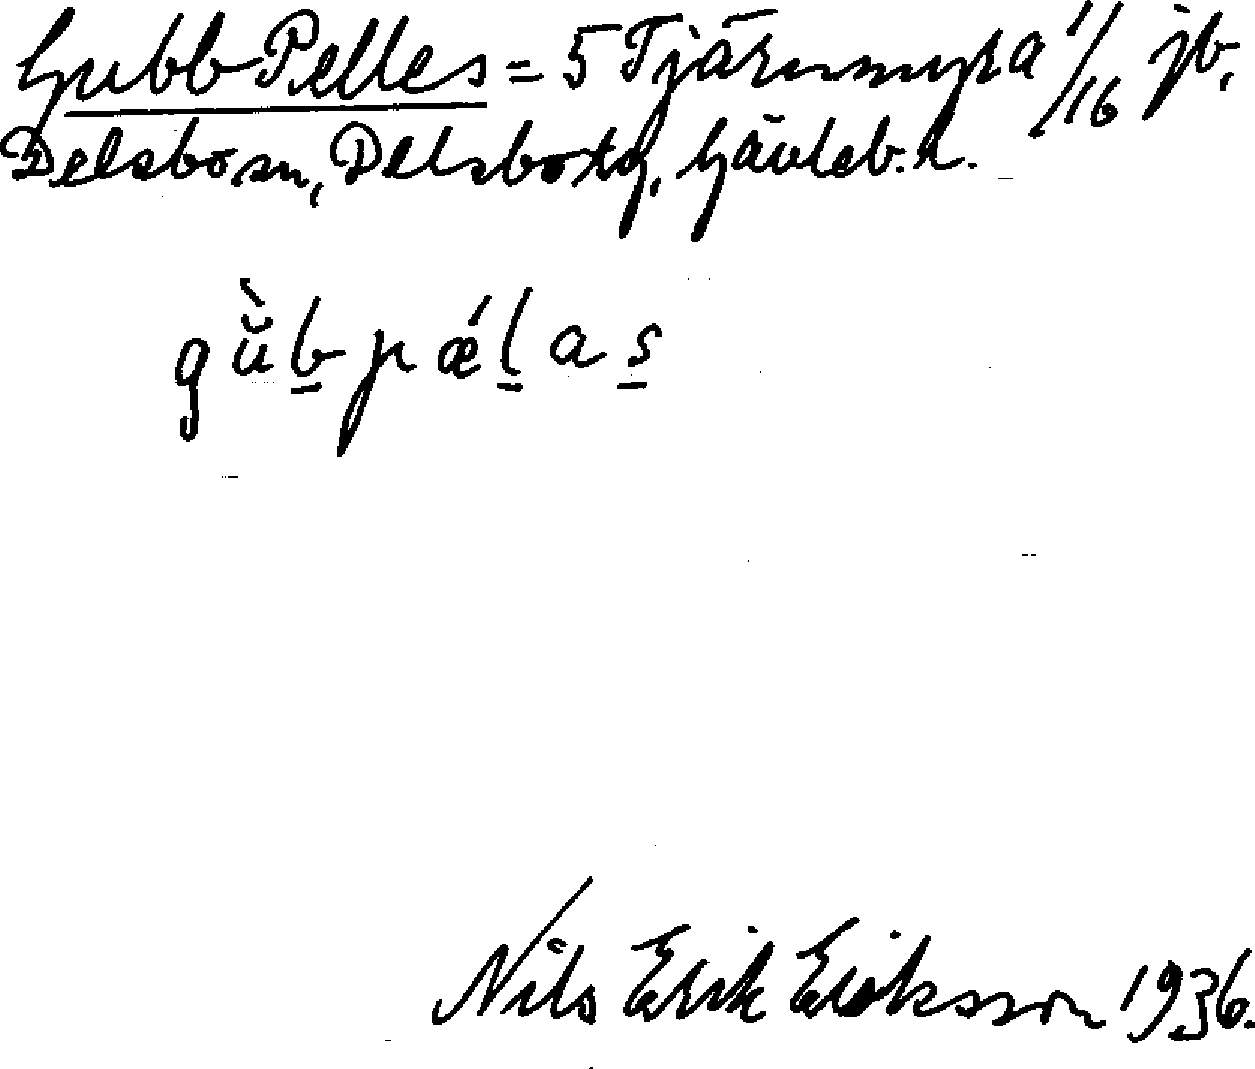 Gubb-Pelles = 5 Tjärnmyra 1/16 jb,
Delsbo sn, Delsbo tg, Gävleb. l.
gu̇̆̀b̲pǽl̲as̲
Nils Erik Eriksson 1936.